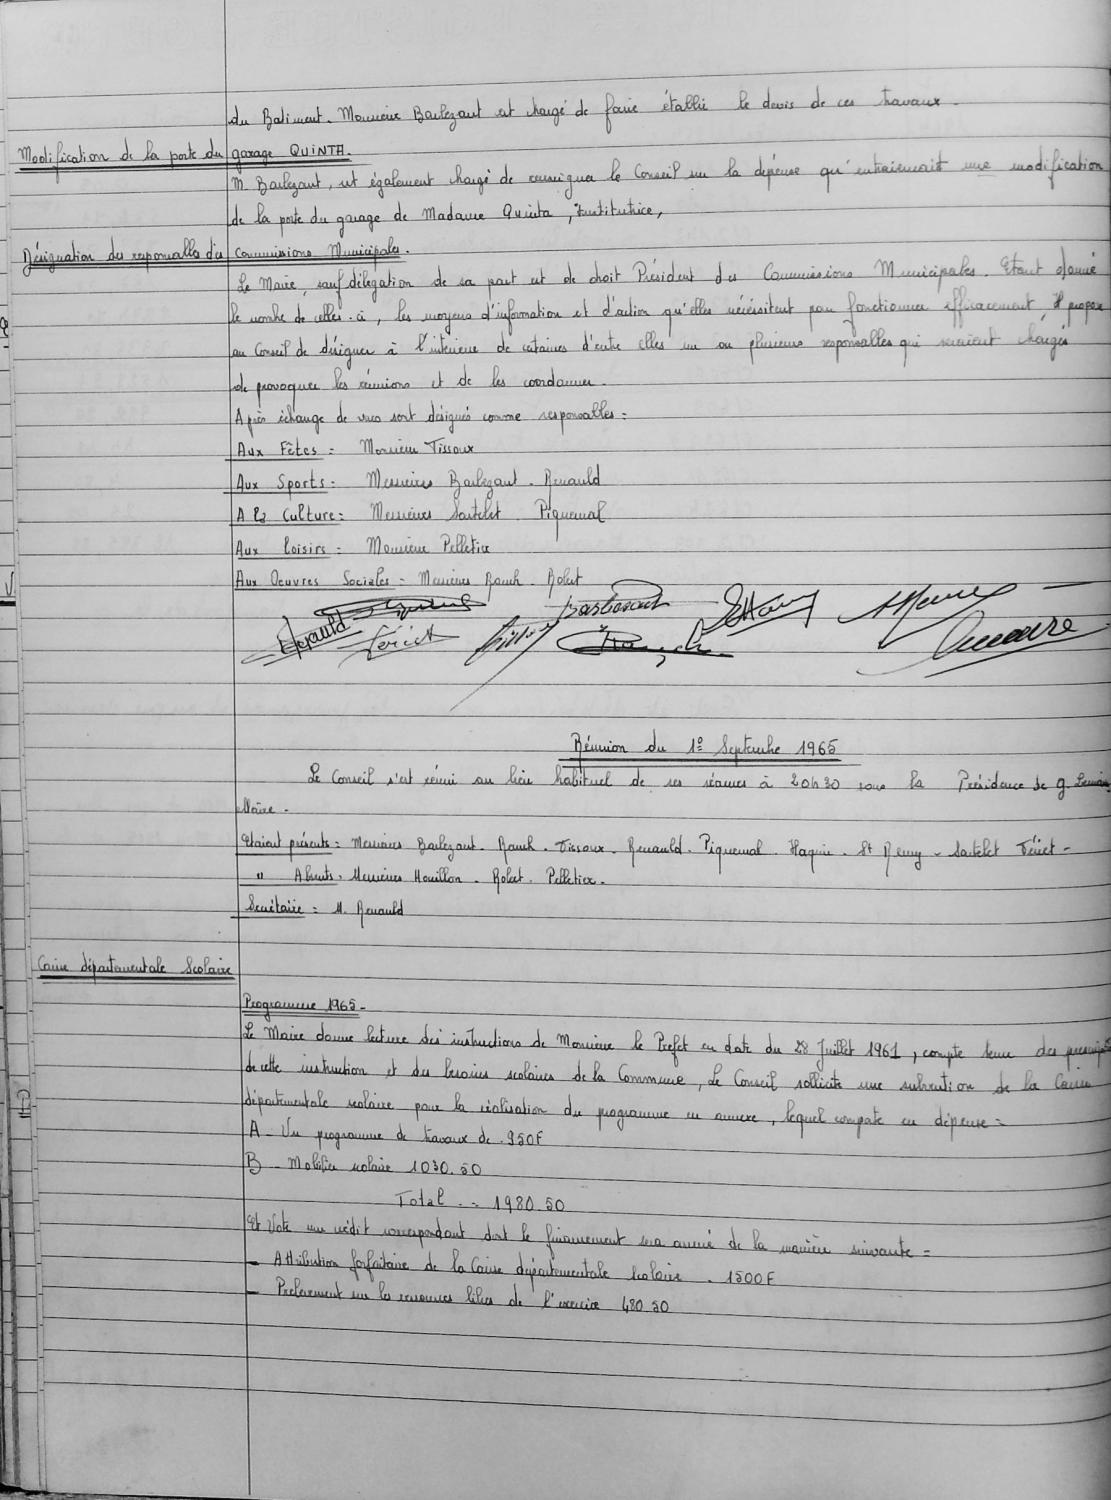 du Batiment. Monsieur Barlezant est chargé de faire établir le devis de ces travaux.
Modification de la porte du garage QUINTA.
M. Barlezant, est également chargé de renseigner le Conseil sur la dépense qu'entrainerait une modification
de la porte du garage de Madame Quinta, Institutrice,
Désignation des responsables des Commissions Municipales.
Le Maire, sauf délégation de sa part est de droit Président des Commissions Municipales. Etant donné
le nombre de celles-ci, les moyens d'information et d'action qu'elles nécéssitent pour fonctionner efficacement, il propose
au Conseil de désigner à l'intérieur de certaines d'entre elles un ou plusieurs responsables qui seraient chargés
de provoquer les réunions et de les coordonner.
Après échange de vues sont désignés comme responsables :
Aux Fêtes : Monsieur Tissoux
Aux Sports : Messieurs Barlezant - Renauld
A la Culture : Messieurs Sautelet - Piquemal
Aux Loisirs : Monsieur Pelletier
Aux Oeuvres Sociales : Messieurs Rouch - Robert
Renauld
Réunion du 1º Septembre 1965
Le Conseil s'est réuni au lieu habituel de ses séances à 20h30 sous la Présidence de G.
Maire.
Etaient présents : Messieurs Barlezant - Rouch - Tissoux - Renauld - Piquemal - Haquin - St Remy - Sautelet Fériet -
" Absents - Messieurs Houillon - Robert - Pelletier.
Secrétaire : M. Renauld
Caisse départementale Scolaire
Programme 1965 -
Le Maire donne lecture des instructions de Monsieur le Prefet en date du 28 Juillet 1961, compte tenu des
de cette instruction et des besoins scolaires de la Commune, Le Conseil sollicite une subvention de la Caisse
départementale scolaire pour la réalisation du programme en annexe, lequel comporte en dépense :
A - Un programme de travaux de . 950F
B - Mobilier scolaire 1030.50
Total . = 1980.50
Et Vote un crédit correspondant dont le financement sera assuré de la manière suivante :
- Attribution forfaitaire de la Caisse départementale scolaire . 1500F
- Prelevement sur les ressources libres de l'exercice 480.50